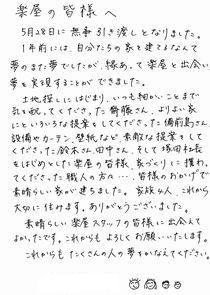 楽屋の皆様へ
5月28日に無事引き渡しとなりました。
1年前には、自分たちの家を建てるなんて
夢のまた夢でしたが、縁あって楽屋と出会い
夢を実現することができました。
土地探しにはじまり、いつも細かいことまで
記を祝ってくださった齊藤さん、よりよい家
にといろいろな提案をしてくださった備前馬さん
設備やカーテン、壁紙など、素敵な提案をして
くださった鈴木さん、田中さん、そして塚田社長
をはじめとした楽屋の皆様、家づくりに携わっ
てくださった職人の方々…、皆様のおかげで
素晴らしい家が建ちました。家族4人、これから
大切に住みます。ありがとうございました。
素晴らしい楽屋スタッフの皆様に出会えて
よかったです。これからもよろしくお願いいたします。
これからもたくさんの人の夢をかなえてください。